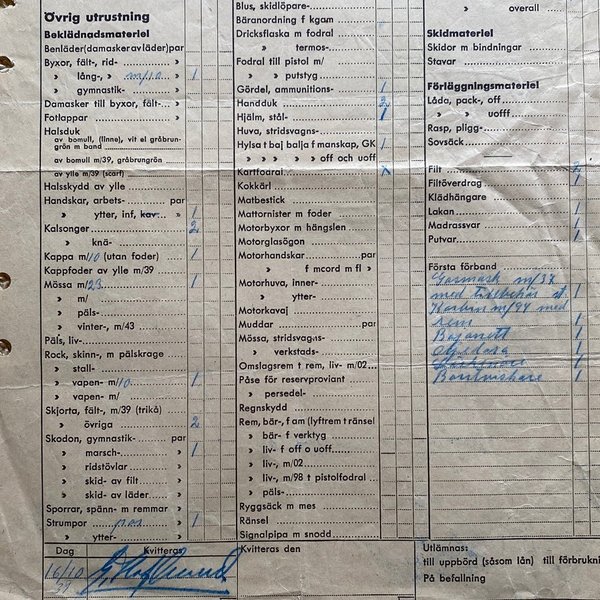 Övrig utrustning
Beklädnadsmateriel
Benläder(damaskeravläder)par
Byxor, fält-, rid- »
» lång-, » m/10 » 1
» gymnastik- »
Damasker till byxor, fält- »
Fotlappar »
Halsduk
av bomull, (linne), vit el gråbrun-
grön m band
av bomull m/39, gråbrungrön
av ylle m/39 (scarf)
Halsskydd av ylle
Handskar, arbets- par
» ytter, inf, kav 1
Kalsonger 2
» knä-
Kappa m/10 (utan foder) 1
Kappfoder av ylle m/39
Mössa m/23 1
» m/
» päls-
» vinter-, m/43
Päls, liv-
Rock, skinn-, m pälskrage
» stall-
» vapen- m/10 1
» vapen- m/
Skjorta, fält-, m/39 (trikå)
» övriga 2
Skodon, gymnastik- par
» marsch- » 1
» ridstövlar »
» skid- av filt »
» skid- av läder »
Sporrar, spänn- m remmar »
Strumpor par » 1
» ytter- »
Dag Kvitteras
16/10
39
Blus, skidlöpare-
Bäranordning f kgam
Dricksflaska m fodral
» termos-
Fodral till pistol m/
» » putstyg
Gördel, ammunitions- 1
Handduk 2
Hjälm, stål- 1
Huva, stridsvagns-
Hylsa f baj balja f manskap, GK 1
» » » » off och uoff
Kartfodral x
Kokkärl
Matbestick
Mattornister m foder
Motorbyxor m hängslen
Motorglasögon
Motorhandskar par
» f mcord m fl »
Motorhuva, inner-
» ytter-
Motorkavaj
Muddar par
Mössa, stridsvagns-
» verkstads-
Omslagsrem t rem, liv- m/02
Påse för reservproviant
» persedel-
Regnskydd
Rem, bär-, f am (lyftrem t ränsel
» bär- f verktyg
» liv- f off o uoff
» liv-, m/02
» liv-, m/98 t pistolfodral
» päls-
Ryggsäck m mes
Ränsel
Signalpipa m snodd
Kvitteras den
» overall
Skidmateriel
Skidor m bindningar
Stavar
Förläggningsmateriel
Låda, pack-, off
» » uofff
Rasp, pligg-
Sovsäck
Filt 2
Filtöverdrag 1
Klädhängare
Lakan 1
Madrassvar 1
Putvar 1
Första förband
Gasmask m/37
med tillbehör st. 1
Karbin m/94 med
rem 1
Bajonett 1
Oljedosa 1
Borstviskare 1
Utlämnas:
till uppbörd (såsom lån) till förbrukni
På befallning